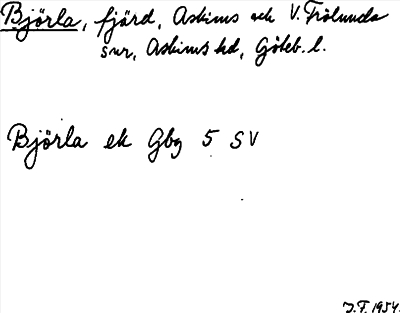 Björla, fjärd, Askims och V. Frölunda
snr, Askims hd, Göteb. l.
Björla ek Gbg 5 SV
J.F. 1954.